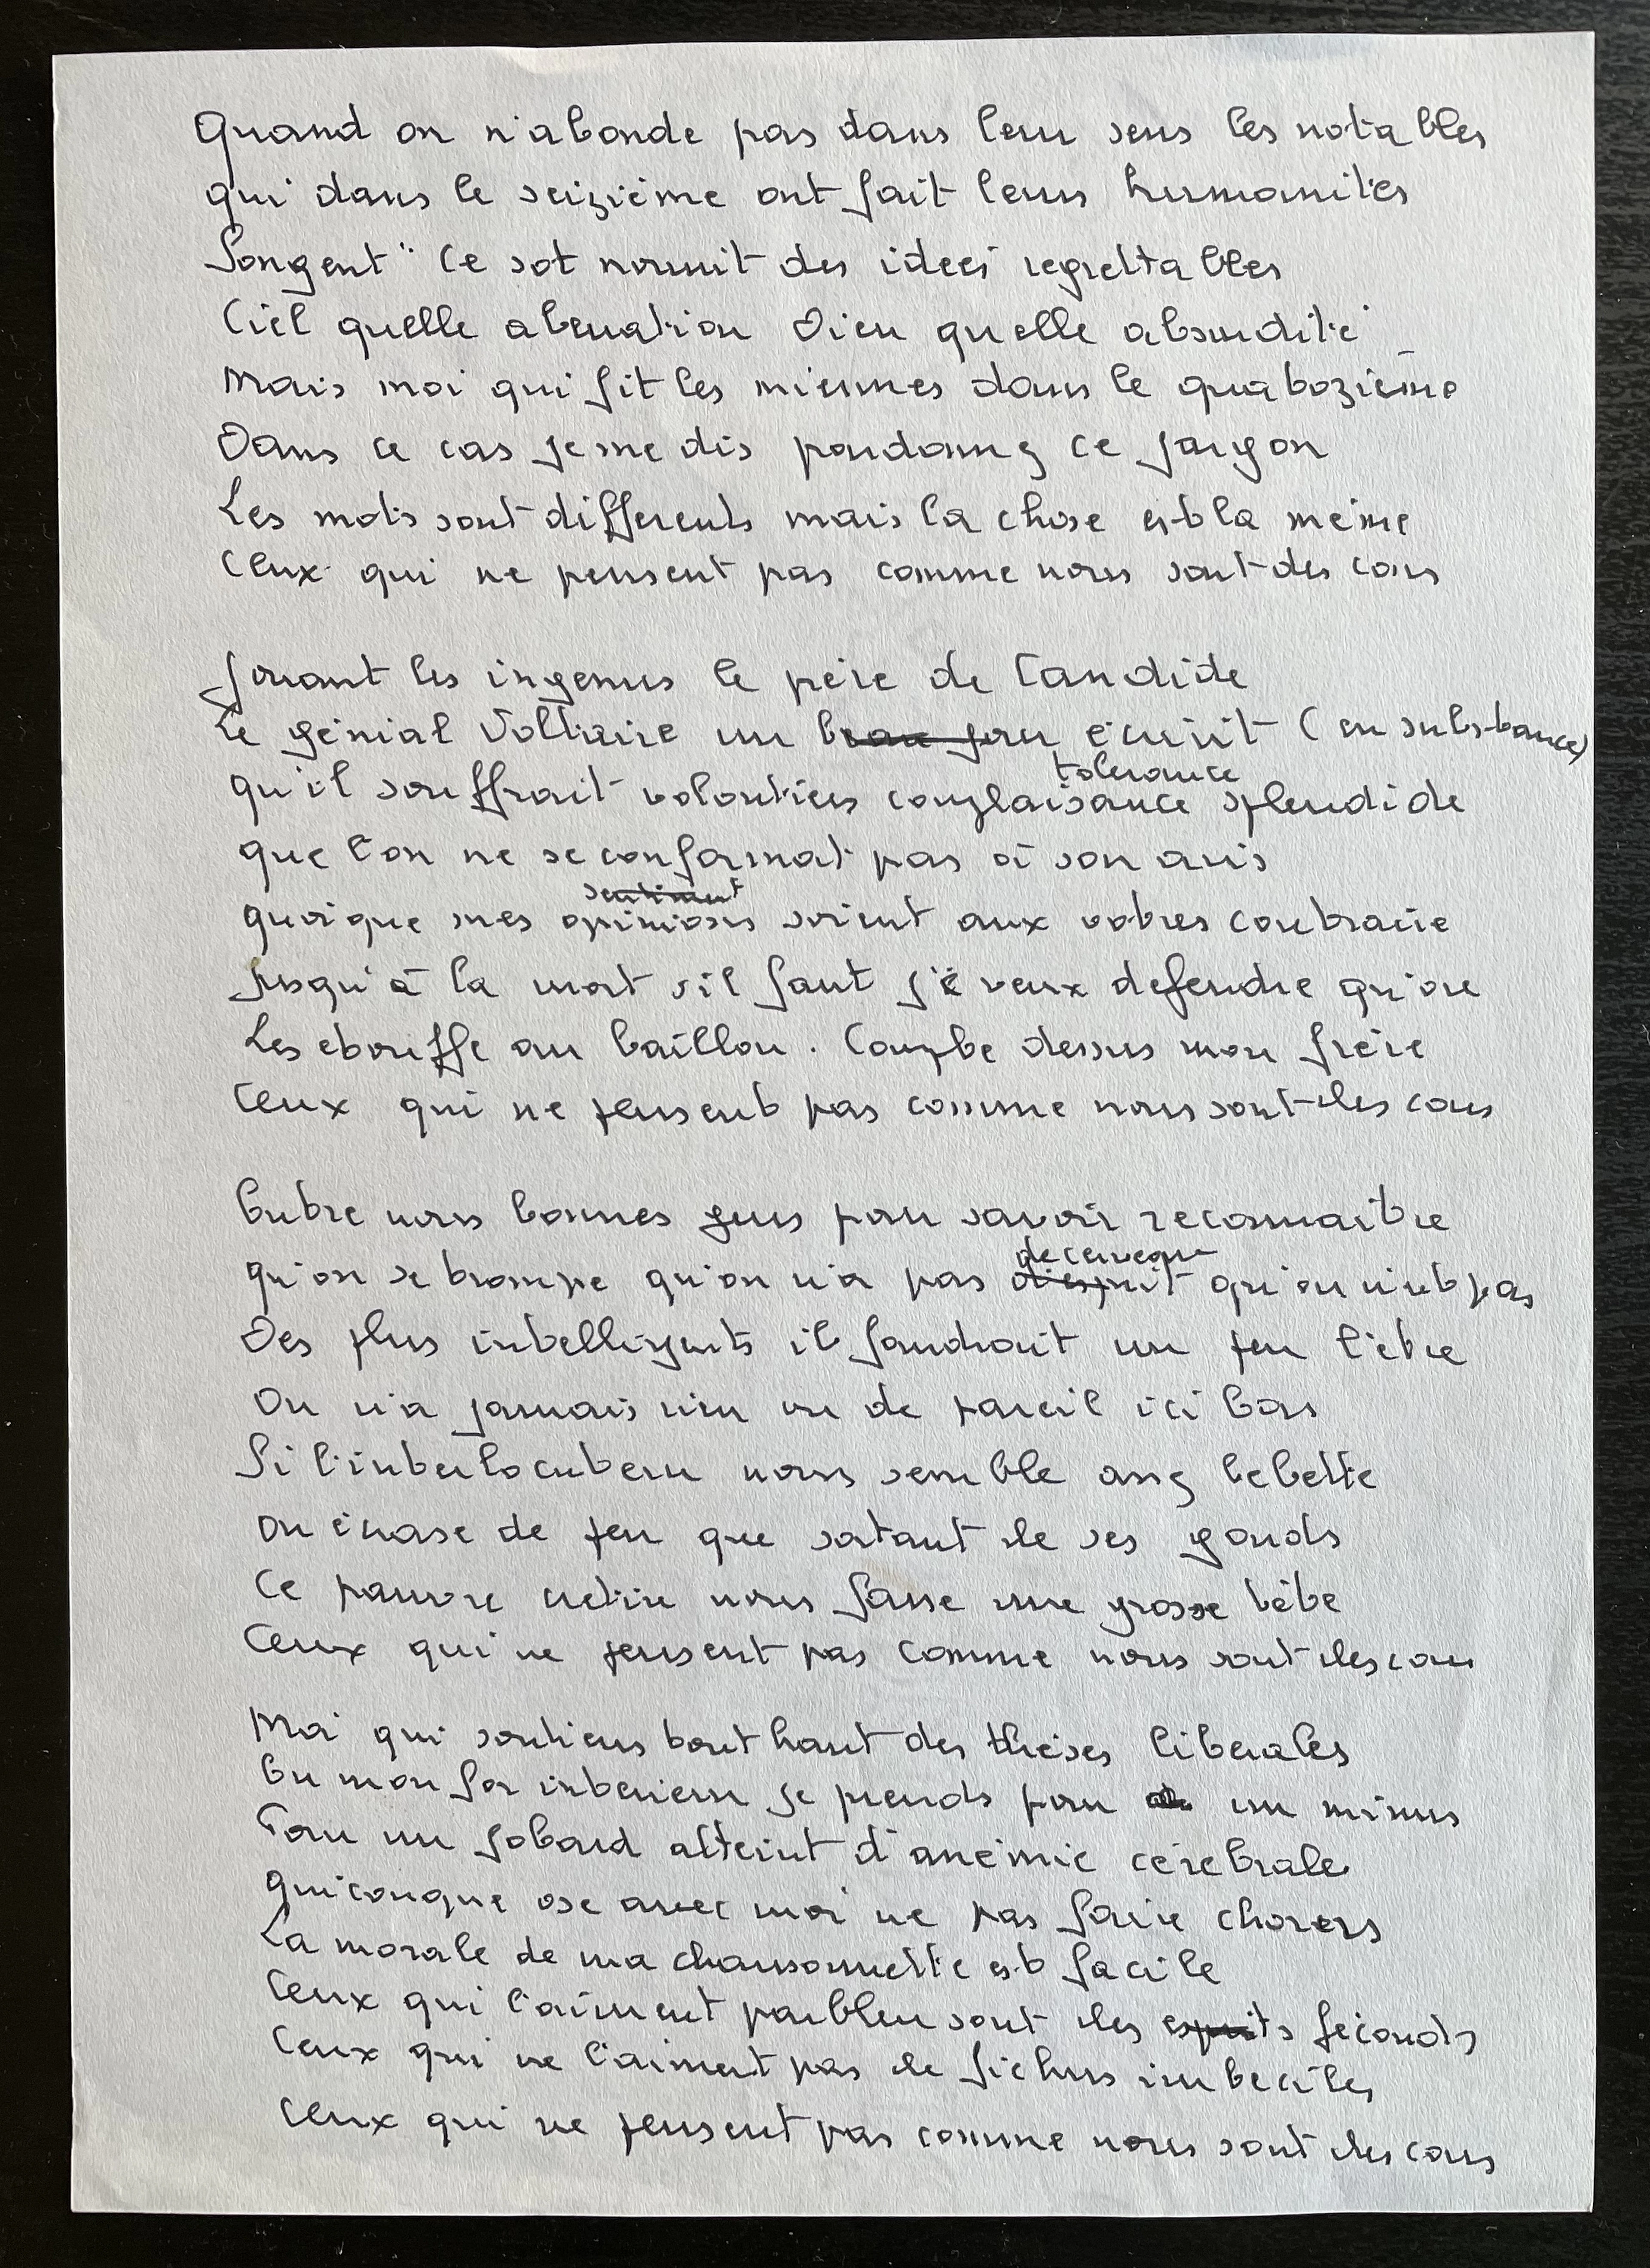 Quand on n'abonde pas dans leur sens les notables
qui dans le seizième ont fait leurs humanités
Songent " Ce sot nourrit des idées regrettables
Ciel quelle aberration Dieu quelle absurdité
Mais moi qui fit les miennes dans le quatozième
Dans ce cas je me dis pardonnez ce jargon
Les mots sont differents mais la chose est la même
Ceux qui ne pensent pas comme nous sont des cons
Jouant les ingenus le père de Candide
Le génial Voltaire un beau jour écrivit (en substance)
tolerance
qu'il souffrait volontiers complaisance splendide
que l'on ne se conformat pas à son avis
sentiment
quoique mes opinions soient aux votres contraire
Jusqu'à la mort s'il faut je veux defendre qu'ore
Les etouffe au baillon. Compte dessus mon frère
Ceux qui ne pensent pas comme nous sont des cons
Entre nous bonnes gens pour savoir reconnaitre
de cerveau
qu'on se trompe qu'on n'a pas d'esprit qu'on n'est pas
Des plus intelligents il faudrait un peu l'être
On n'a jamais rien vu de pareil ici bas
Si l'interlocuteur nous semble assez bebette
On écrase de peu que sortant de ses gonds
Ce pauvre hère nous fasse une grosse bête
Ceux qui ne pensent pas comme nous sont des cons
Moi qui soutiens tout haut des thèses liberales
En mon for interieur je prends pour un minus
Pour un jobard atteint d'anémie cérébrale
quiconque ose avec moi ne pas faire chorus
La morale de ma chansonnette est facile
Ceux qui l'aiment parbleu sont des esprits féconds
Ceux qui ne l'aiment pas de fichus imbeciles
Ceux qui ne pensent pas comme nous sont des cons